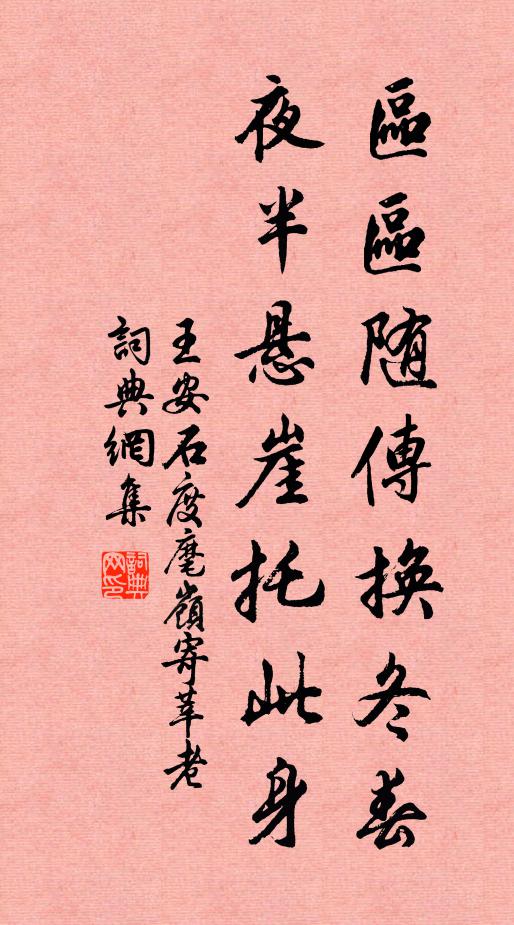 區區随傳換冬春
夜半懸崖托此身
王安石度麾嶺寄莘老
詞典網集
詞典網印